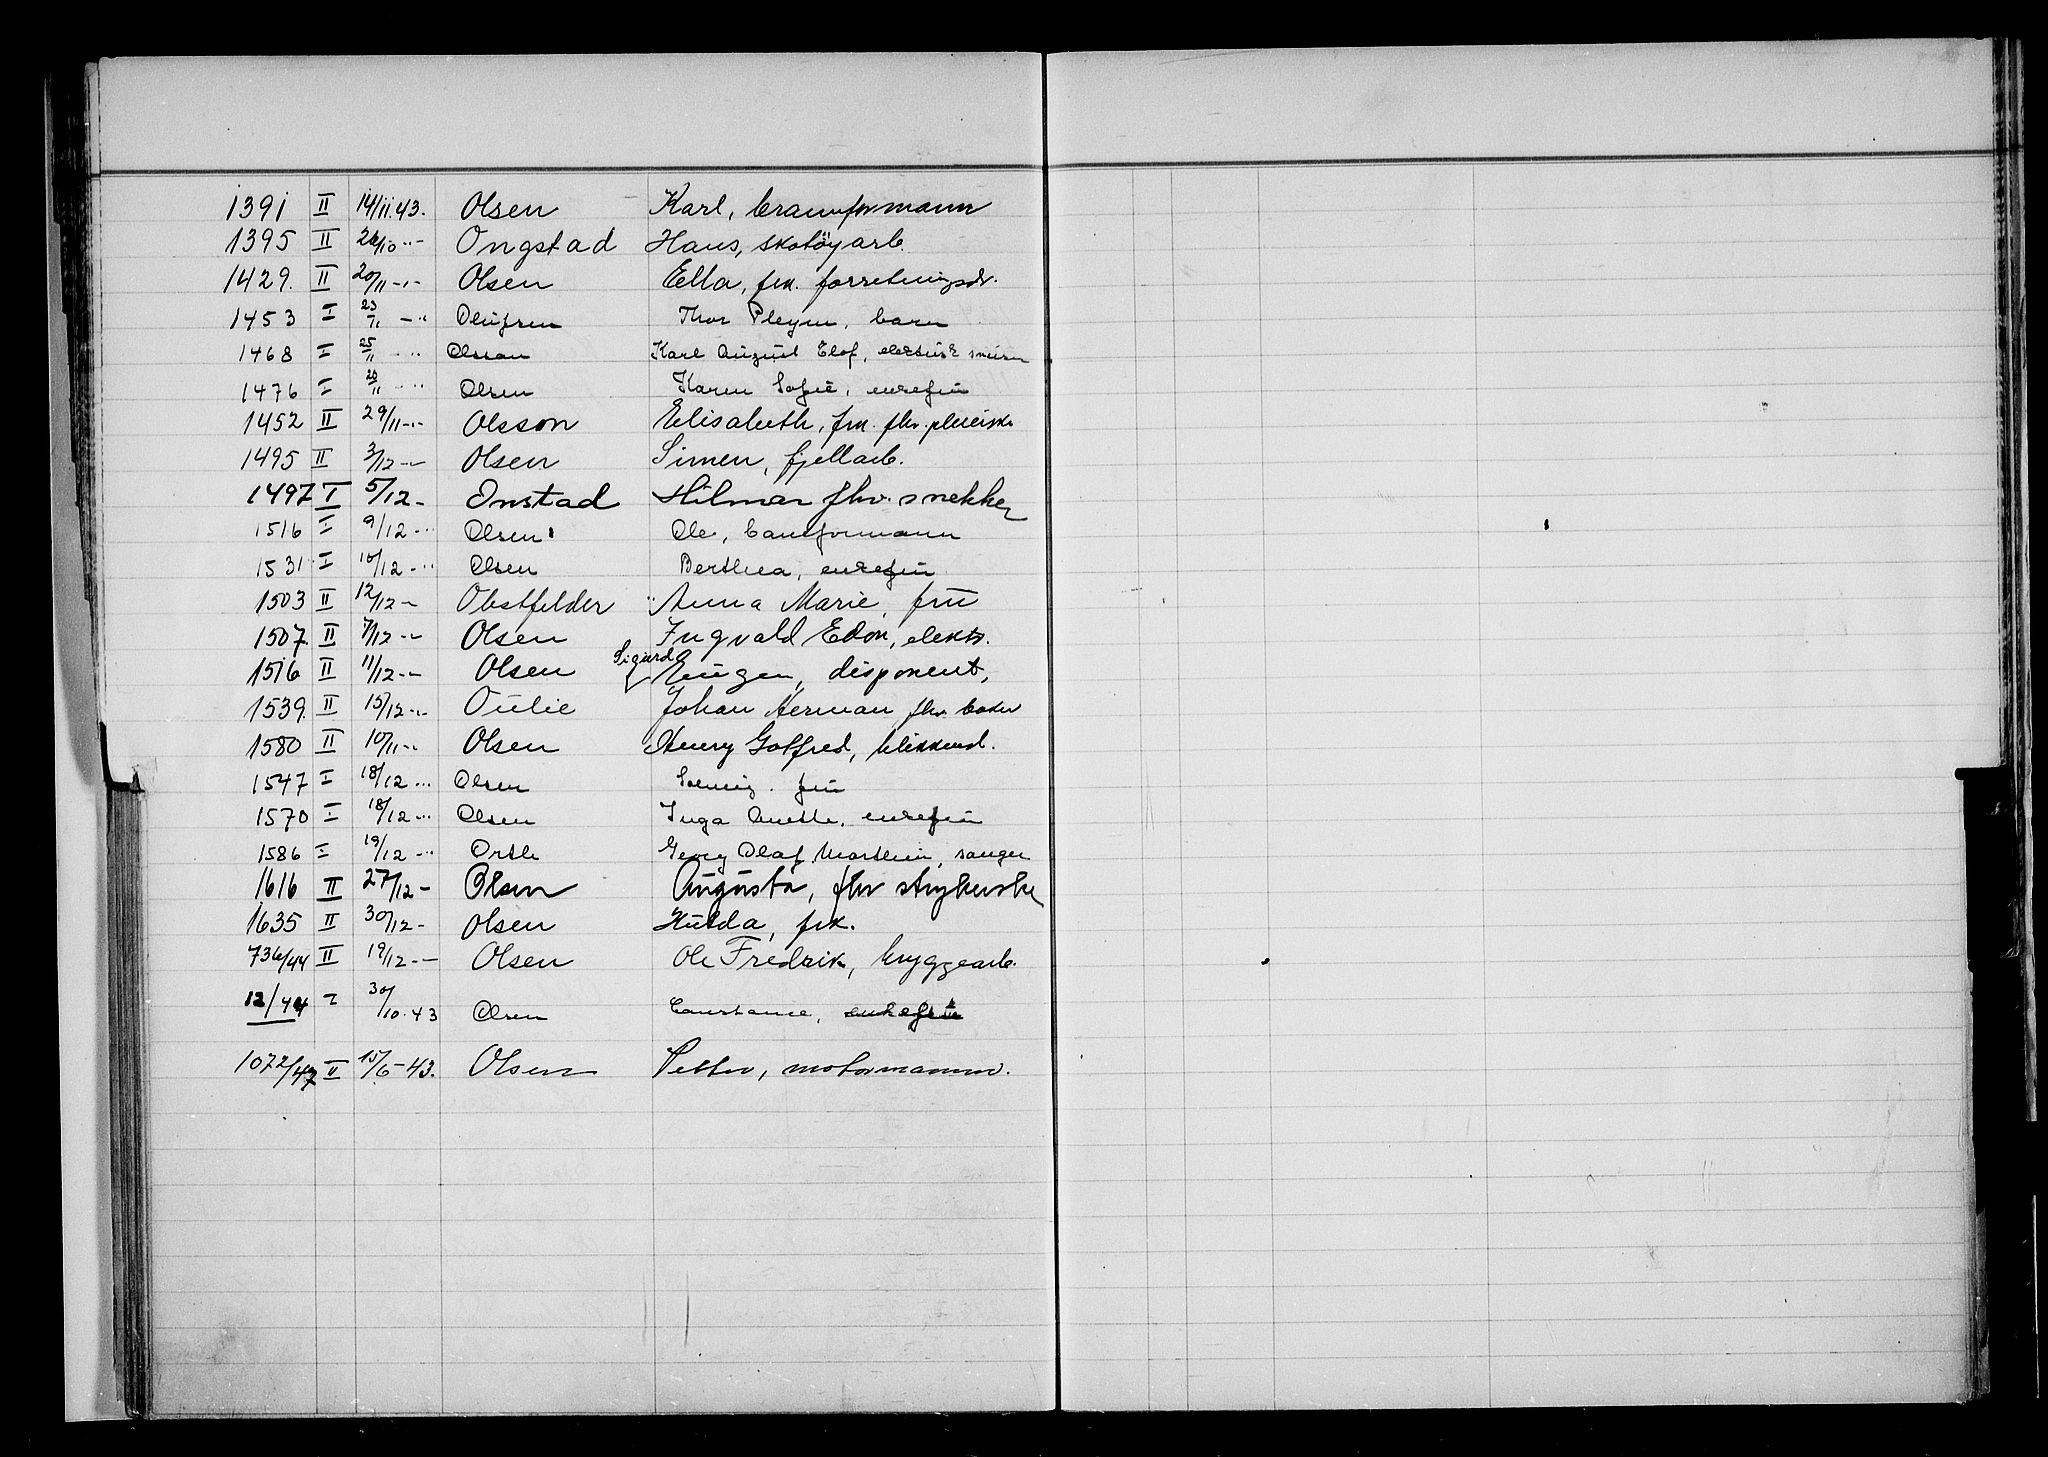 1391 II 14/11.43. Olsen Karl, baneformann
1395 II 26/10 -"- Ongstad Hans, skotöyarb.
1429. II 20/11 -"- Olsen Ella, frk. forretningsdr.
1453 I 23/11 -"- Olufsen Thor Pleym, barn
1468 I 25/11 -"- Olsson Karl August Elof, elektrisk
1476 I 20/11 -"- Olsen Karen Sofie, enkefru
1452 II 29/11 -"- Olsson Elisabeth, frk. fhv. pleierske
1495 II 3/12 -"- Olsen Simen, fjellarb.
1497 I 5/12 - Onstad Hilmar fhv. snekker
1516 I 9/12 -"- Olsen Ole, baneformann
1531 I 10/12 -"- Olsen Berthea, enkefru
1503 II 12/12 -"- Obstfelder Anna Marie, frü
1507. II 7/12 -"- Olsen Ingvald Edon, elektr.
1516 II 11/12 -"- Olsen Sigurd Eugen, disponent,
1539. II 15/12 -"- Oulie Johan Herman fhv.
1580 II 10/11 -"- Olsen Henry Gotfred, blikkensl.
1547 I 18/12 -"- Olsen Solveig. frü
1570 I 18/12 -"- Olsen Inga Anette, enkefrü
1586 I 19/12 -"- Orth Georg Olaf Marthin, sanger
1616 II 27/12 - Olsen Augusta, fhv strykerske
1635 II 30/12 - Olsen Hulda, frk.
736/44 II 19/12 -- Olsen Ole Fredrik, bryggearb.
12/44 I 30/10.43 Olsen Constance, enkefru
1072/47 II 15/6-43. Olsen Petter, motormann.